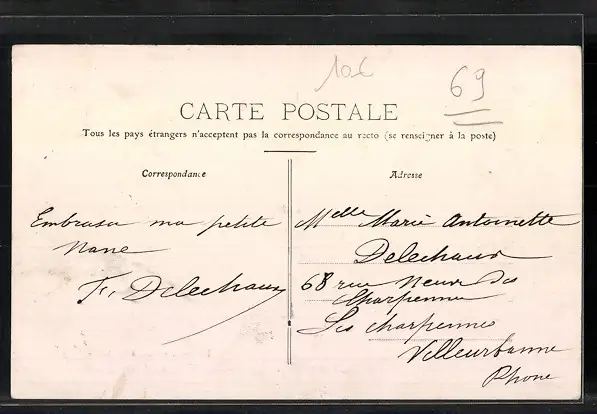 10€
69
CARTE POSTALE
Tous les pays étrangers n'acceptent pas la correspondance au recto (se renseigner à la poste)
Correspondance
Embrasse ma petite
Nane
Fr. Delechaux
Adresse
Melle Marie Antoinette
Delechaux
68 rue Neuve des
Charpennes
Les charpennes
Villeurbanne
Rhone